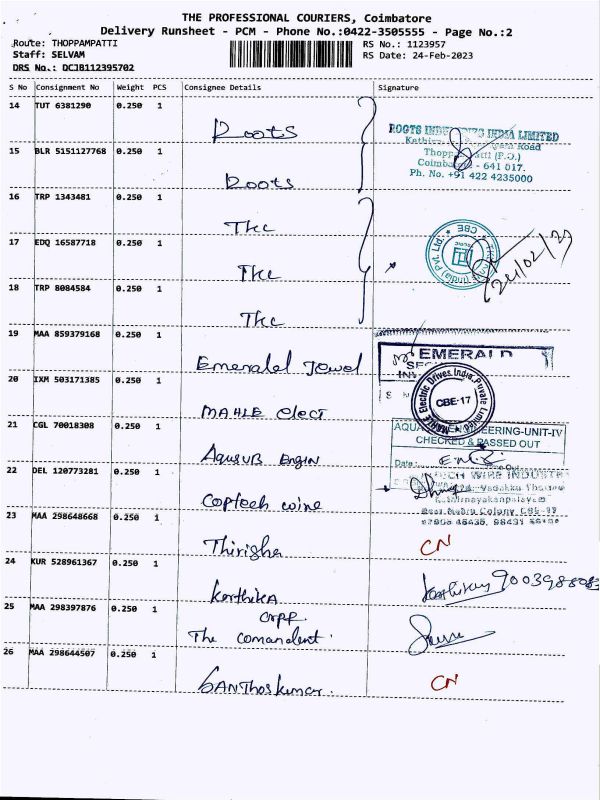 THE PROFESSIONAL COURIERS, Coimbatore
Delivery Runsheet - PCM - Phone No.:0422-3505555 - Page No.:2
Route: THOPPAMPATTI RS No.: 1123957
Staff: SELVAM RS Date: 24-Feb-2023
DRS No.: DCJB112395702
S No Consignment No Weight PCS Consignee Details Signature
14 TUT 6381290 0.250 1
Roots
ROOTS INDUSTRIES INDIA LIMITED
Road
15 BLR 5151127768 0.250 1
Coimbatore - 641 017.
Ph. No. +91 422 4235000
Roots
16 TRP 1343481 0.250 1
Tkc
CBE
17 EDQ 16587718 0.250 1
Tkc
24/02/23
18 TRP 8084584 0.250 1
Tkc
19 MAA 859379168 0.250 1
EMERALD
Emerald Jewel
20 IXM 503171385 0.250 1
MAHLE Electric Drives India Private Limited
CBE-17
MAHLE elect
21 CGL 70018308 0.250 1
ENGINEERING-UNIT-IV
CHECKED & PASSED OUT
Date:
Aqusub Engin
22 DEL 120773281 0.250 1
WIRE INDUSTR
Coptech wire
K.Vadakku Thottam
K.N.G.Pudur
23 MAA 298648668 0.250 1
Thirisha
CN
24 KUR 528961367 0.250 1
Karthika
25 MAA 298397876 0.250 1
CRPF
The comandent.
26 MAA 298644507 0.250 1
SANThoskumar.
CN